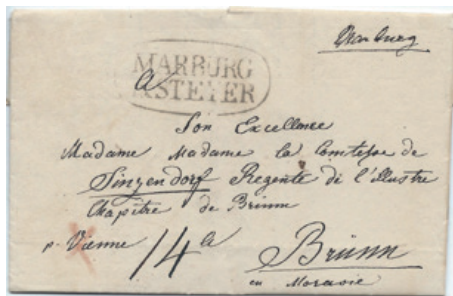 Marburg
MARBURG
STEYER
a
Son Excellence
Madame Madame la Comtesse de
Sinzendorf Regente de l'illustre
Chapitre de Brünn
p. Vienne 14 a Brünn
en Moravie